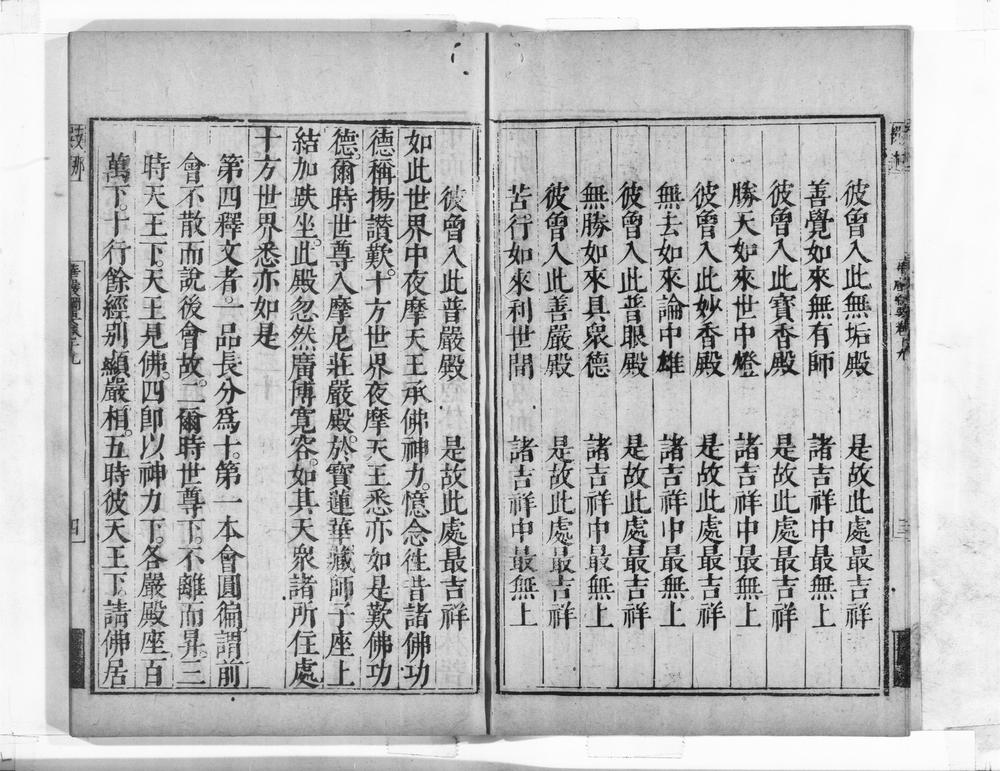 彼曾入此無垢殿 是故此處最吉祥
善覺如來無有師 諸吉祥中最無上
彼曾入此寶香殿 是故此處最吉祥
勝天如來世中燈 諸吉祥中最無上
彼曾入此妙香殿 是故此處最吉祥
無去如來論中雄 諸吉祥中最無上
彼曾入此普眼殿 是故此處最吉祥
無勝如來具衆德 諸吉祥中最無上
彼曾入此善嚴殿 是故此處最吉祥
苦行如來利世間 諸吉祥中最無上
彼曾入此普嚴殿 是故此處最吉祥
如此世界中夜摩天王承佛神力。憶念徃昔諸佛功
德稱揚讚歎。十方世界夜摩天王悉亦如是歎佛功
德。爾時世尊入摩尼莊嚴殿。於寶蓮華藏師子座上
結加趺坐。此殿忽然廣博寬容。如其天衆諸所住處
十方世界悉亦如是
第四釋文者。一品長分爲十。第一本會圓徧謂前
會不散而說後會故。二爾時世尊下。不離而昇。三
時天王下。天王見佛。四卽以神力下。各嚴殿座百
萬下。十行餘經别顯嚴相。五時彼天王下。請佛居
四